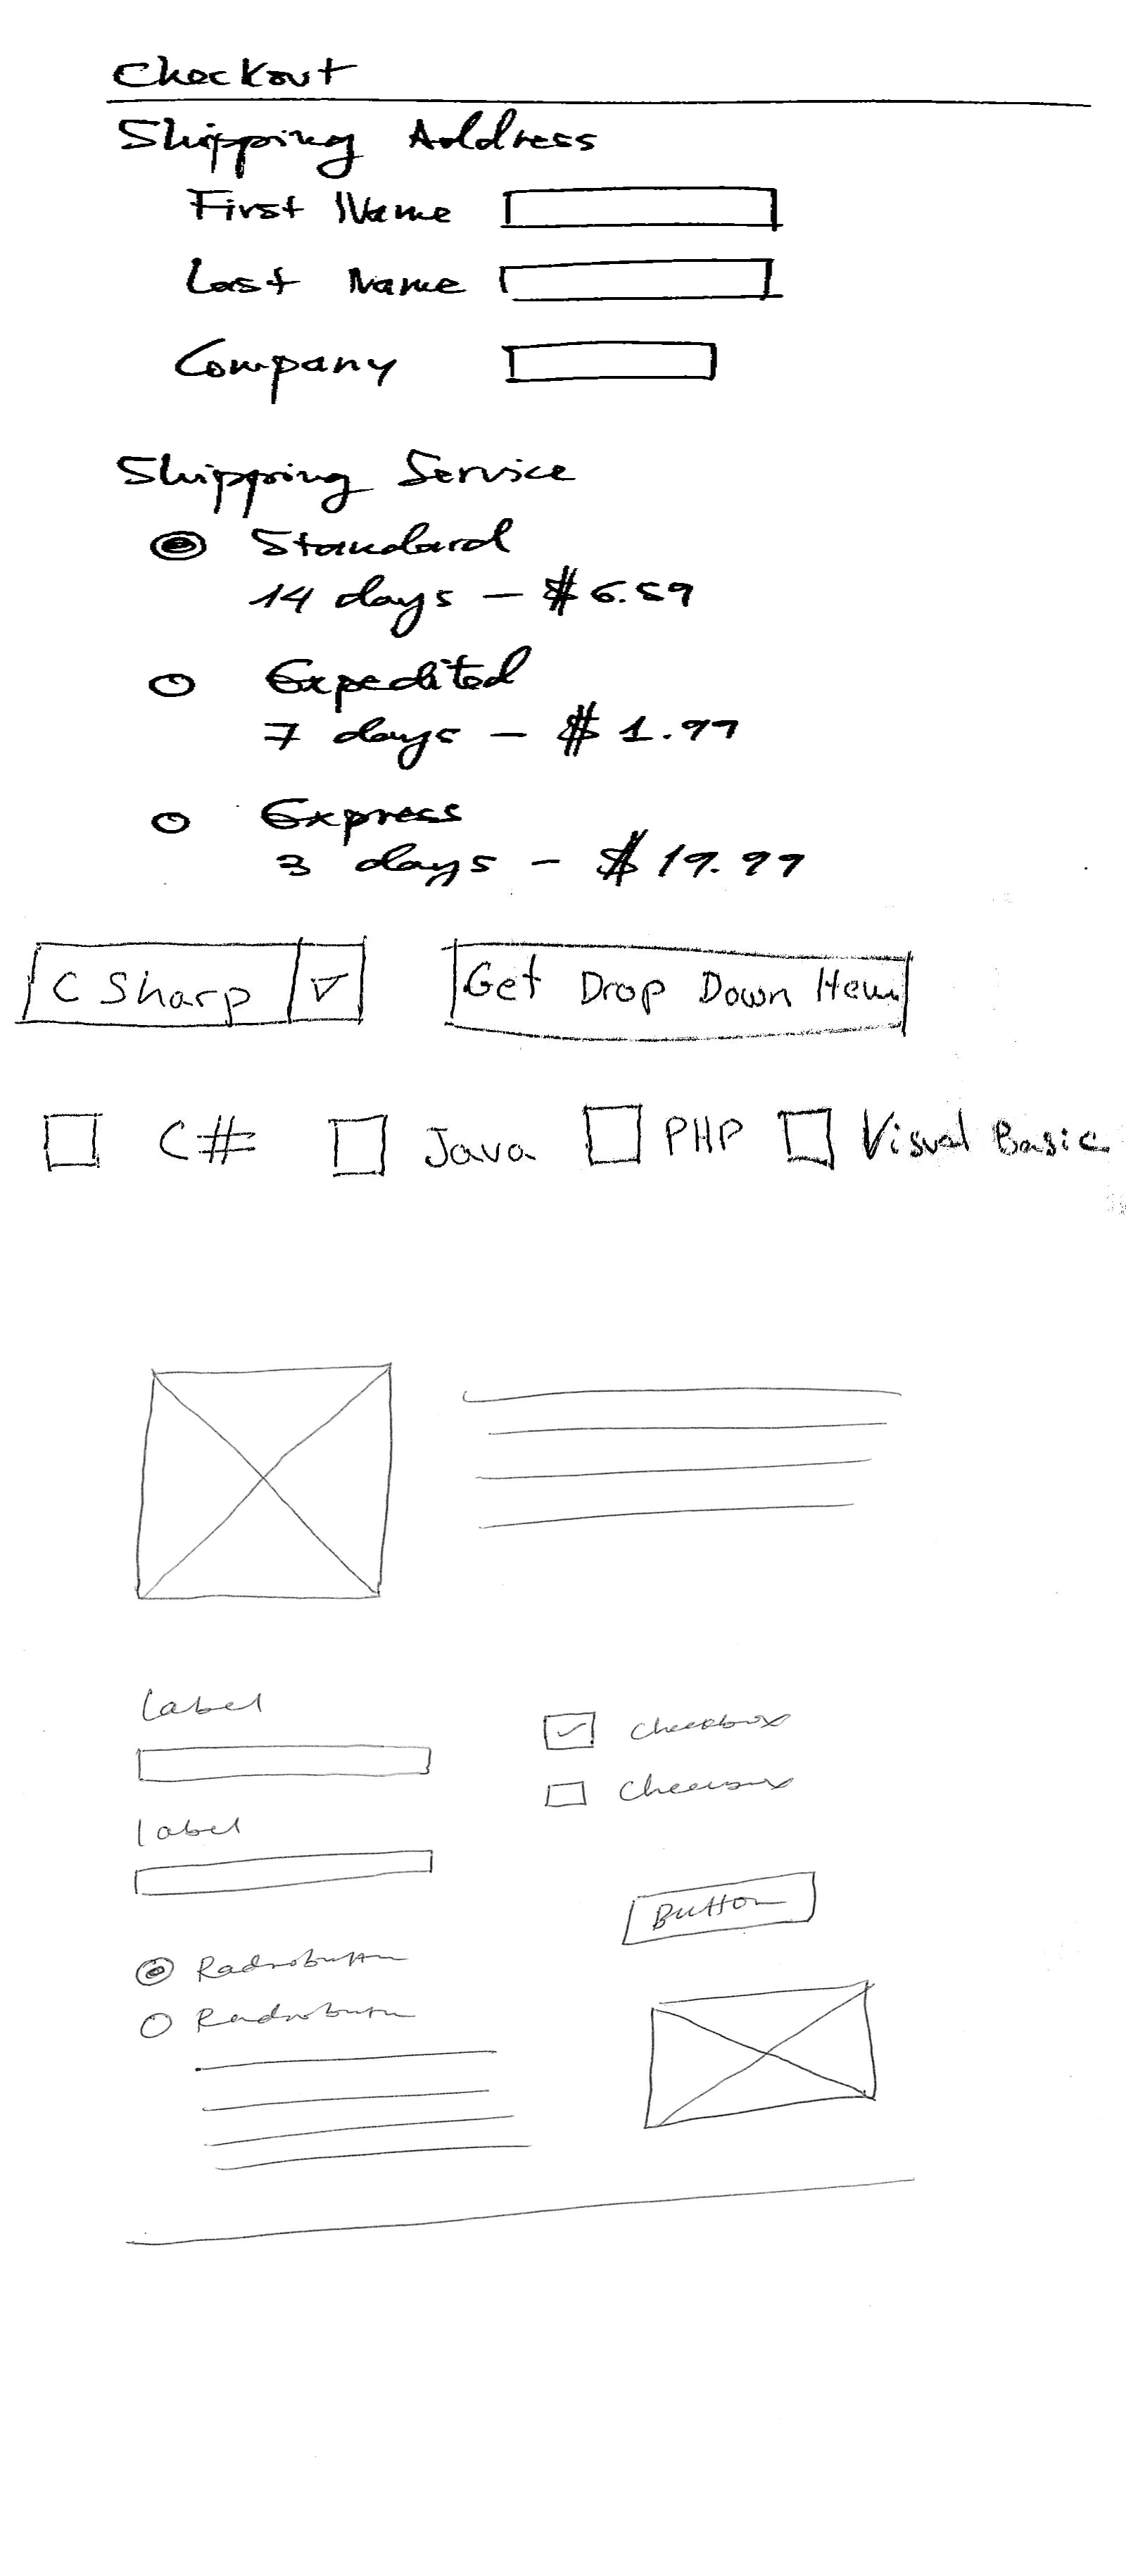 Checkout
Shipping Address
First Name
Last Name
Company
Shipping Service
Standard
14 days - $6.59
Expedited
7 days - $1.99
Express
3 days - $19.99
C Sharp Get Drop Down Item
C# Java PHP Visual Basic
Label
Checkbox
Checkbox
label
Button
Radiobutton
Radiobutton